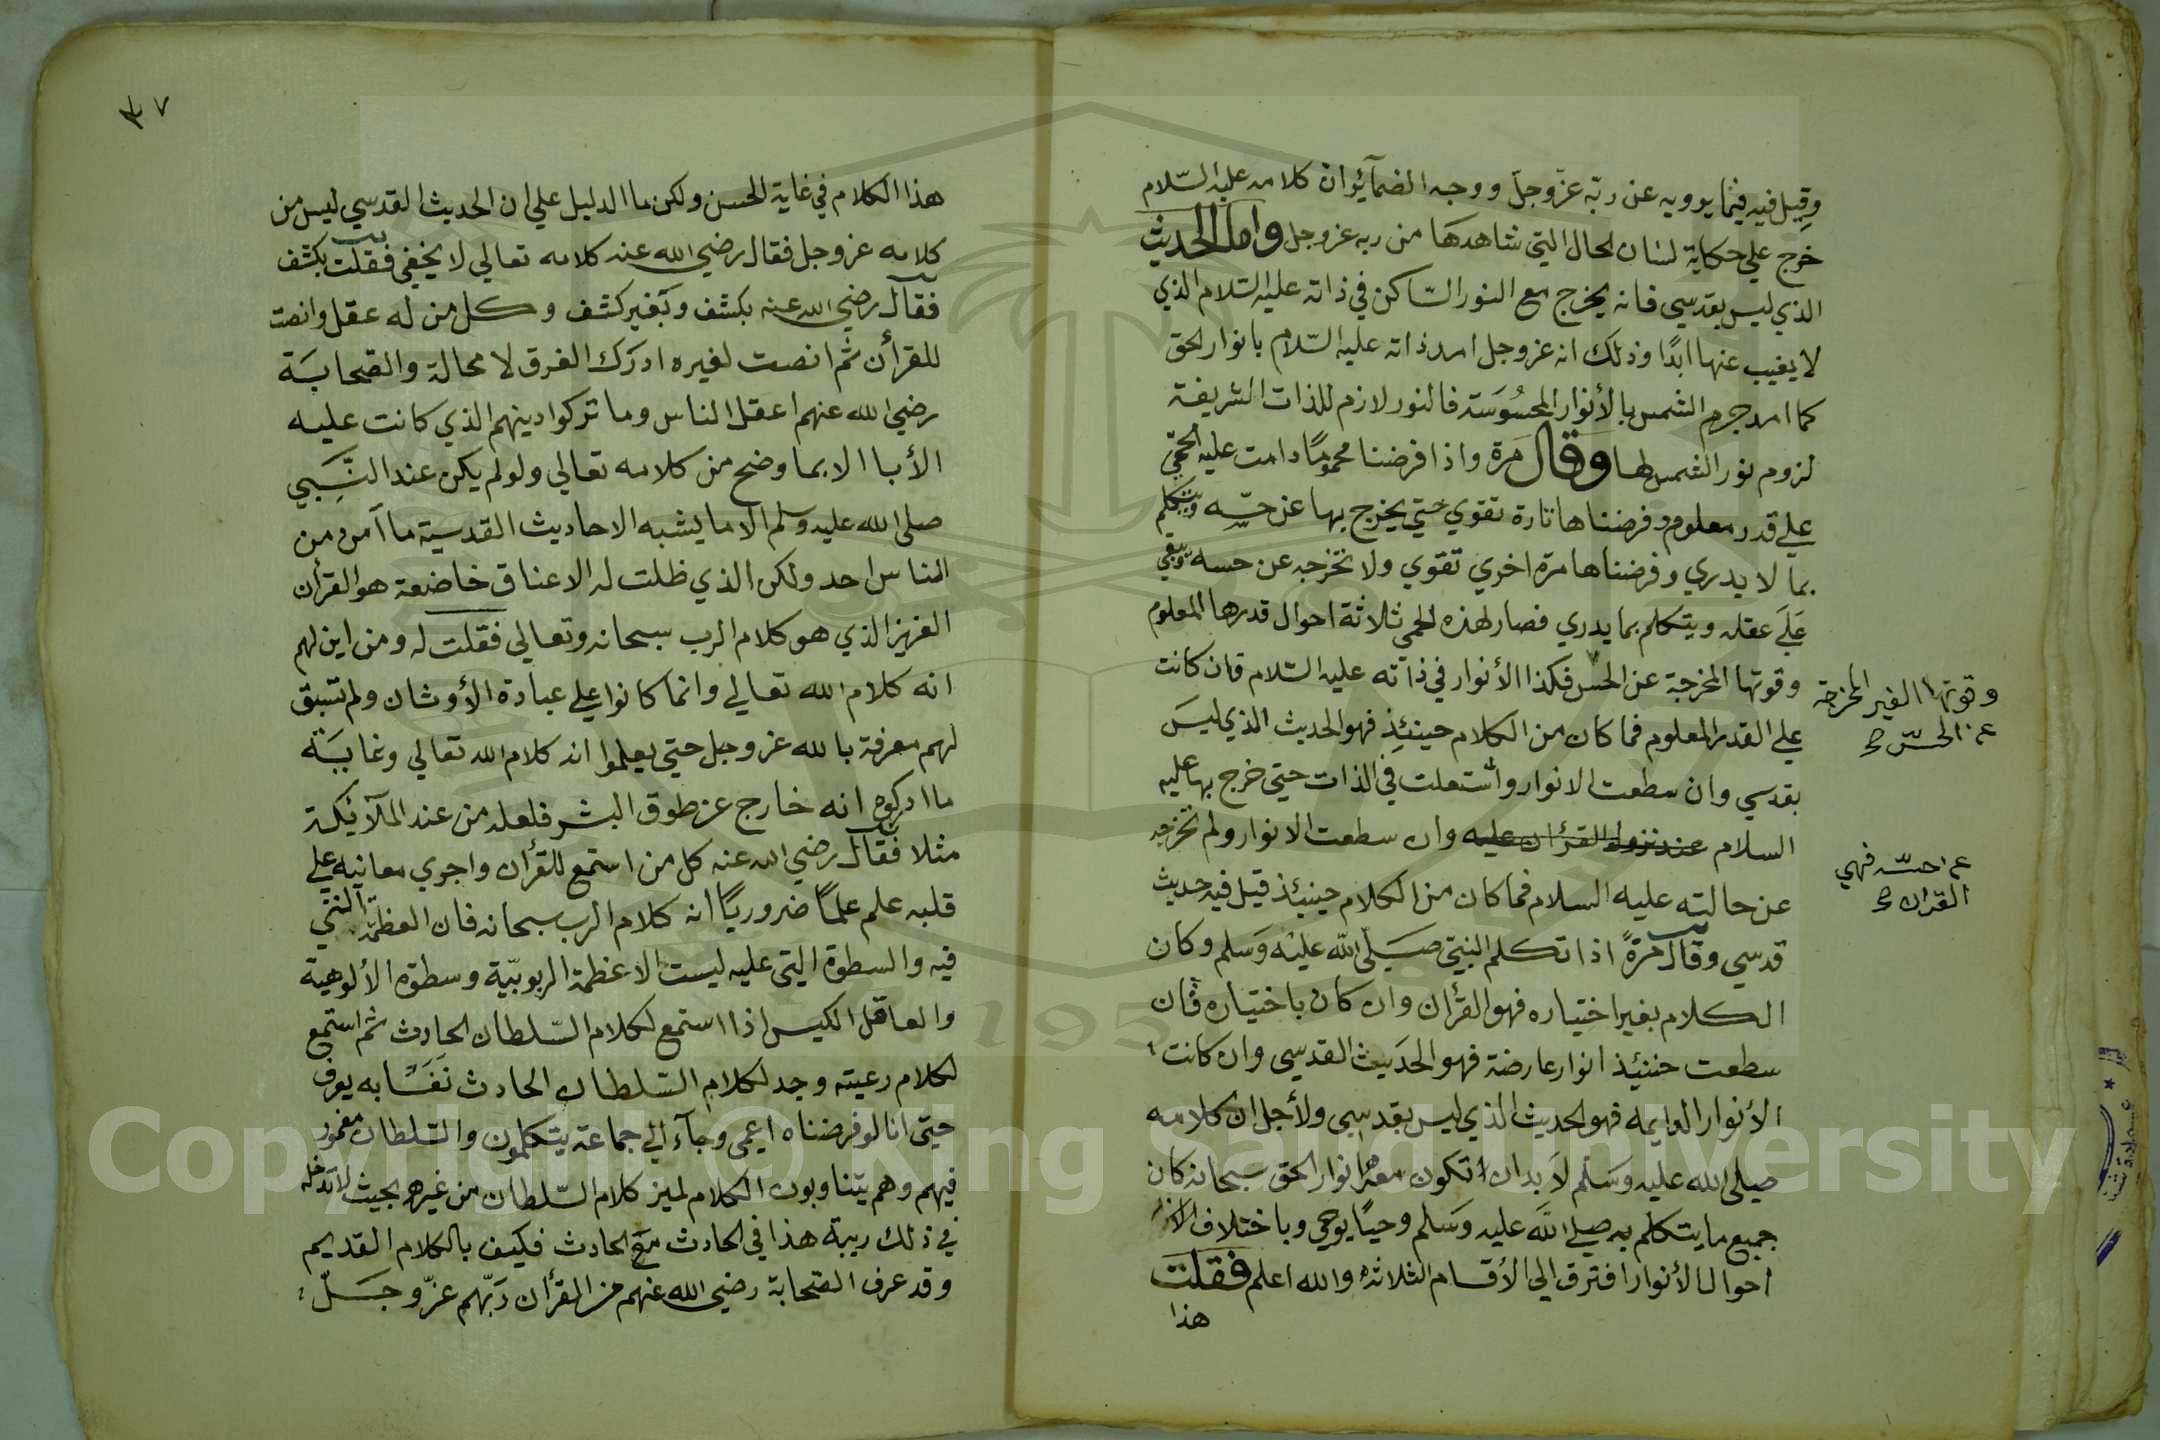 وقيل فيه فيما يرويه عن ربّه عزّ وجلّ ووجه الضمآئر ان كلامه عليه السّلام
خرج علي حكاية لسان الحال التي شاهدها من ربه عز وجل واما الحديث
الذي ليس بقدسي فانه يخرج مع النور السّاكن في ذاته عليه السّلام الذي
لا يغيب عنها ابدًا وذلك انه عز وجل امد ذاته عليه السّلام بانوار الحق
كما امد جرم الشمس بالأنوار المحسُوسَة فالنور لازم للذات الشريفة
لزوم نور الشمس لها وقال مَرة واذا فرضنا محمومًا دامت عليه الحمّي
علي قدر معلوم وفرضناها تارة تقوي حتي يخرج بها عن حسّه ويتكلم
بما لا يدري وفرضناها مرة اخري تقوي ولا تخرجه عن حسه ويبقي
عَلَي عقله ويتكلم بما يدري فصار لهذه الحمي ثلاثة احوال قدرها المعلوم
وقوتها المخرجة عن الحس فكذا الأنوار في ذاته عليه السّلام فان كانت
وقوتها الغير المخرجة
عن الحسّ صح
علي القدر المعلوم فما كان من الكلام حينئِذٍ فهو الحديث الذي ليسَ
بقدسي وان سطعت الانوار واشتعلت في الذات حتي خرج بها عليه
السلام عند نزول القرأن عليه وان سطعت الانوار ولم تخرجه
عن حسّه فهي
القران صح
عن حالته عليه السلام فما كان من الكلام حينئذ قيل فيه حديث
قدسي وقال مَرةً اذا تكلم النبيّ صَلّي اللّه عليْه وَسَلم وكان
الكلام بغير اختياره فهو القرأن وان كان باختياره فان
سطعت حنئيذ انوار عارضة فهو الحَديث القدسي وان كانت
الأنوار الدايمه فهو الحديث الذي ليس بقدسي ولأجل ان كلامه
صلي الله عليه وسَلم لاَ بد ان تكون معه انوار الحق سبحانه كان
جميع ما يتكلم به صلي اللَّه عليه وَسَلم وحيًا يوحي وباختلاف
احوال الأنوار افترق الي الأقسام الثلاثه والله اعلم فقلت
هذا
٣٧
هذا الكلام في غاية الحسن ولكن ما الدليل علي ان الحديث القدسي ليس من
كلامه عز وجل فقال رضي الله عنه كلامه تعالي لا يخفي فقلت بكشف
فقال رضي الله عنه بكشف وبَغير كشف وكل من له عقل وانصت
للقرأن ثم انصت لغيره ادرَك الفرق لا محالة والصحابَة
رضي الله عنهم اعقل الناس وما تركوا دينهم الذي كانت عليه
الأبا الا بما وضح من كلامه تعالي ولو لم يكن عند النَّبِي
صلي الله عليه وسلم الا ما يشبه الاحاديث القدسية ما آمن من
الناس احد ولكن الذي ظلت له الاعناق خاضعة هو القرأن
العزيز الذي هو كلام الرب سبحانه وتعالي فقلت له ومن اين لهم
انه كلام الله تعالي وانما كانوا علي عبادة الأوثان ولم تسبق
لهم معرفة بالله عز وجل حتي يعلموا انه كلام الله تعالي وغايَة
ما ادركوه انه خارج عن طوق البشر فلعله من عند الملآئيكة
مثلا فقال رضي الله عنه كل من استمع للقرأن واجري معانيه علي
قلبه علم علمًا ضروريًا انه كلام الرب سبحانه فان العظمَة التي
فيه والسطوة التي عليه ليست الا عظمة الربوبيّة وسطوة الألوهية
والعاقل الكيس اذا استمع لكلام السّلطان الحادث ثم استمع
لكلام رعيته وجد لكلام السّلطان الحادث نَفَسًا به يعرف
حتي انا لو فرضناه اعمي وجآء الي جماعة يتكلمون والسّلطان مغمور
فيهم وهم يتناوبون الكلام لميز كلام السّلطان من غيره بحيث لا تدخله
في ذلك ريبة هذا في الحادث مَع الحادث فكيف بالكلام القديم
وقد عرف الصّحابة رضي الله عنهم من القرأن رَبّهم عزّ وجَلّ
Copyright © King Saud University
195